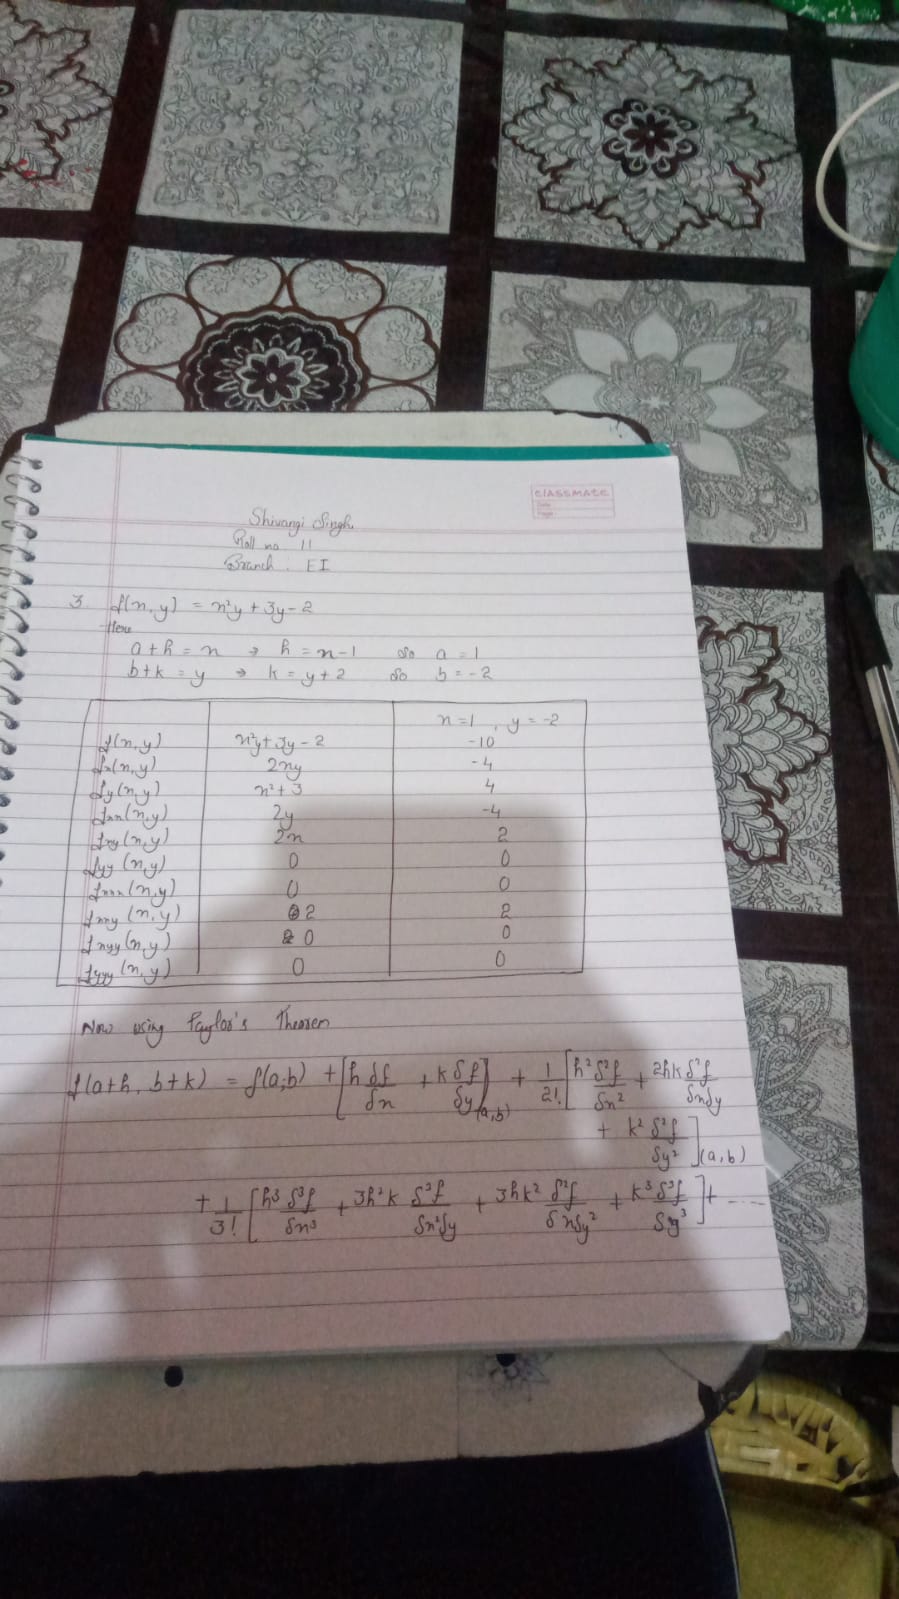 classmate
Date
Page
Shivangi Singh
Roll no. 11
Branch. EI
3. f(n,y) = n²y + 3y - 2
Here
a+h = n → h = n-1 so a = 1
b+k = y → k = y+2 so b = -2
n=1, y=-2
f(n,y) n²y+3y-2 -10
fn(n,y) 2ny -4
fy(n,y) n²+3 4
fnn(n,y) 2y -4
fny(n,y) 2n 2
fyy(n,y) 0 0
fnnn(n,y) 0 0
fnny(n,y) 2 2
fnyy(n,y) 0 0
fyyy(n,y) 0 0
Now using Taylor's Theorem
f(a+h, b+k) = f(a,b) + [h δf/δn + k δf/δy](a,b) + 1/2! [h² δ²f/δn² + 2hk δ²f/δnδy
+ k² δ²f/δy²](a,b)
+ 1/3! [h³ δ³f/δn³ + 3h²k δ³f/δn²δy + 3hk² δ²f/δnδy² + k³ δ³f/δy³] + ------